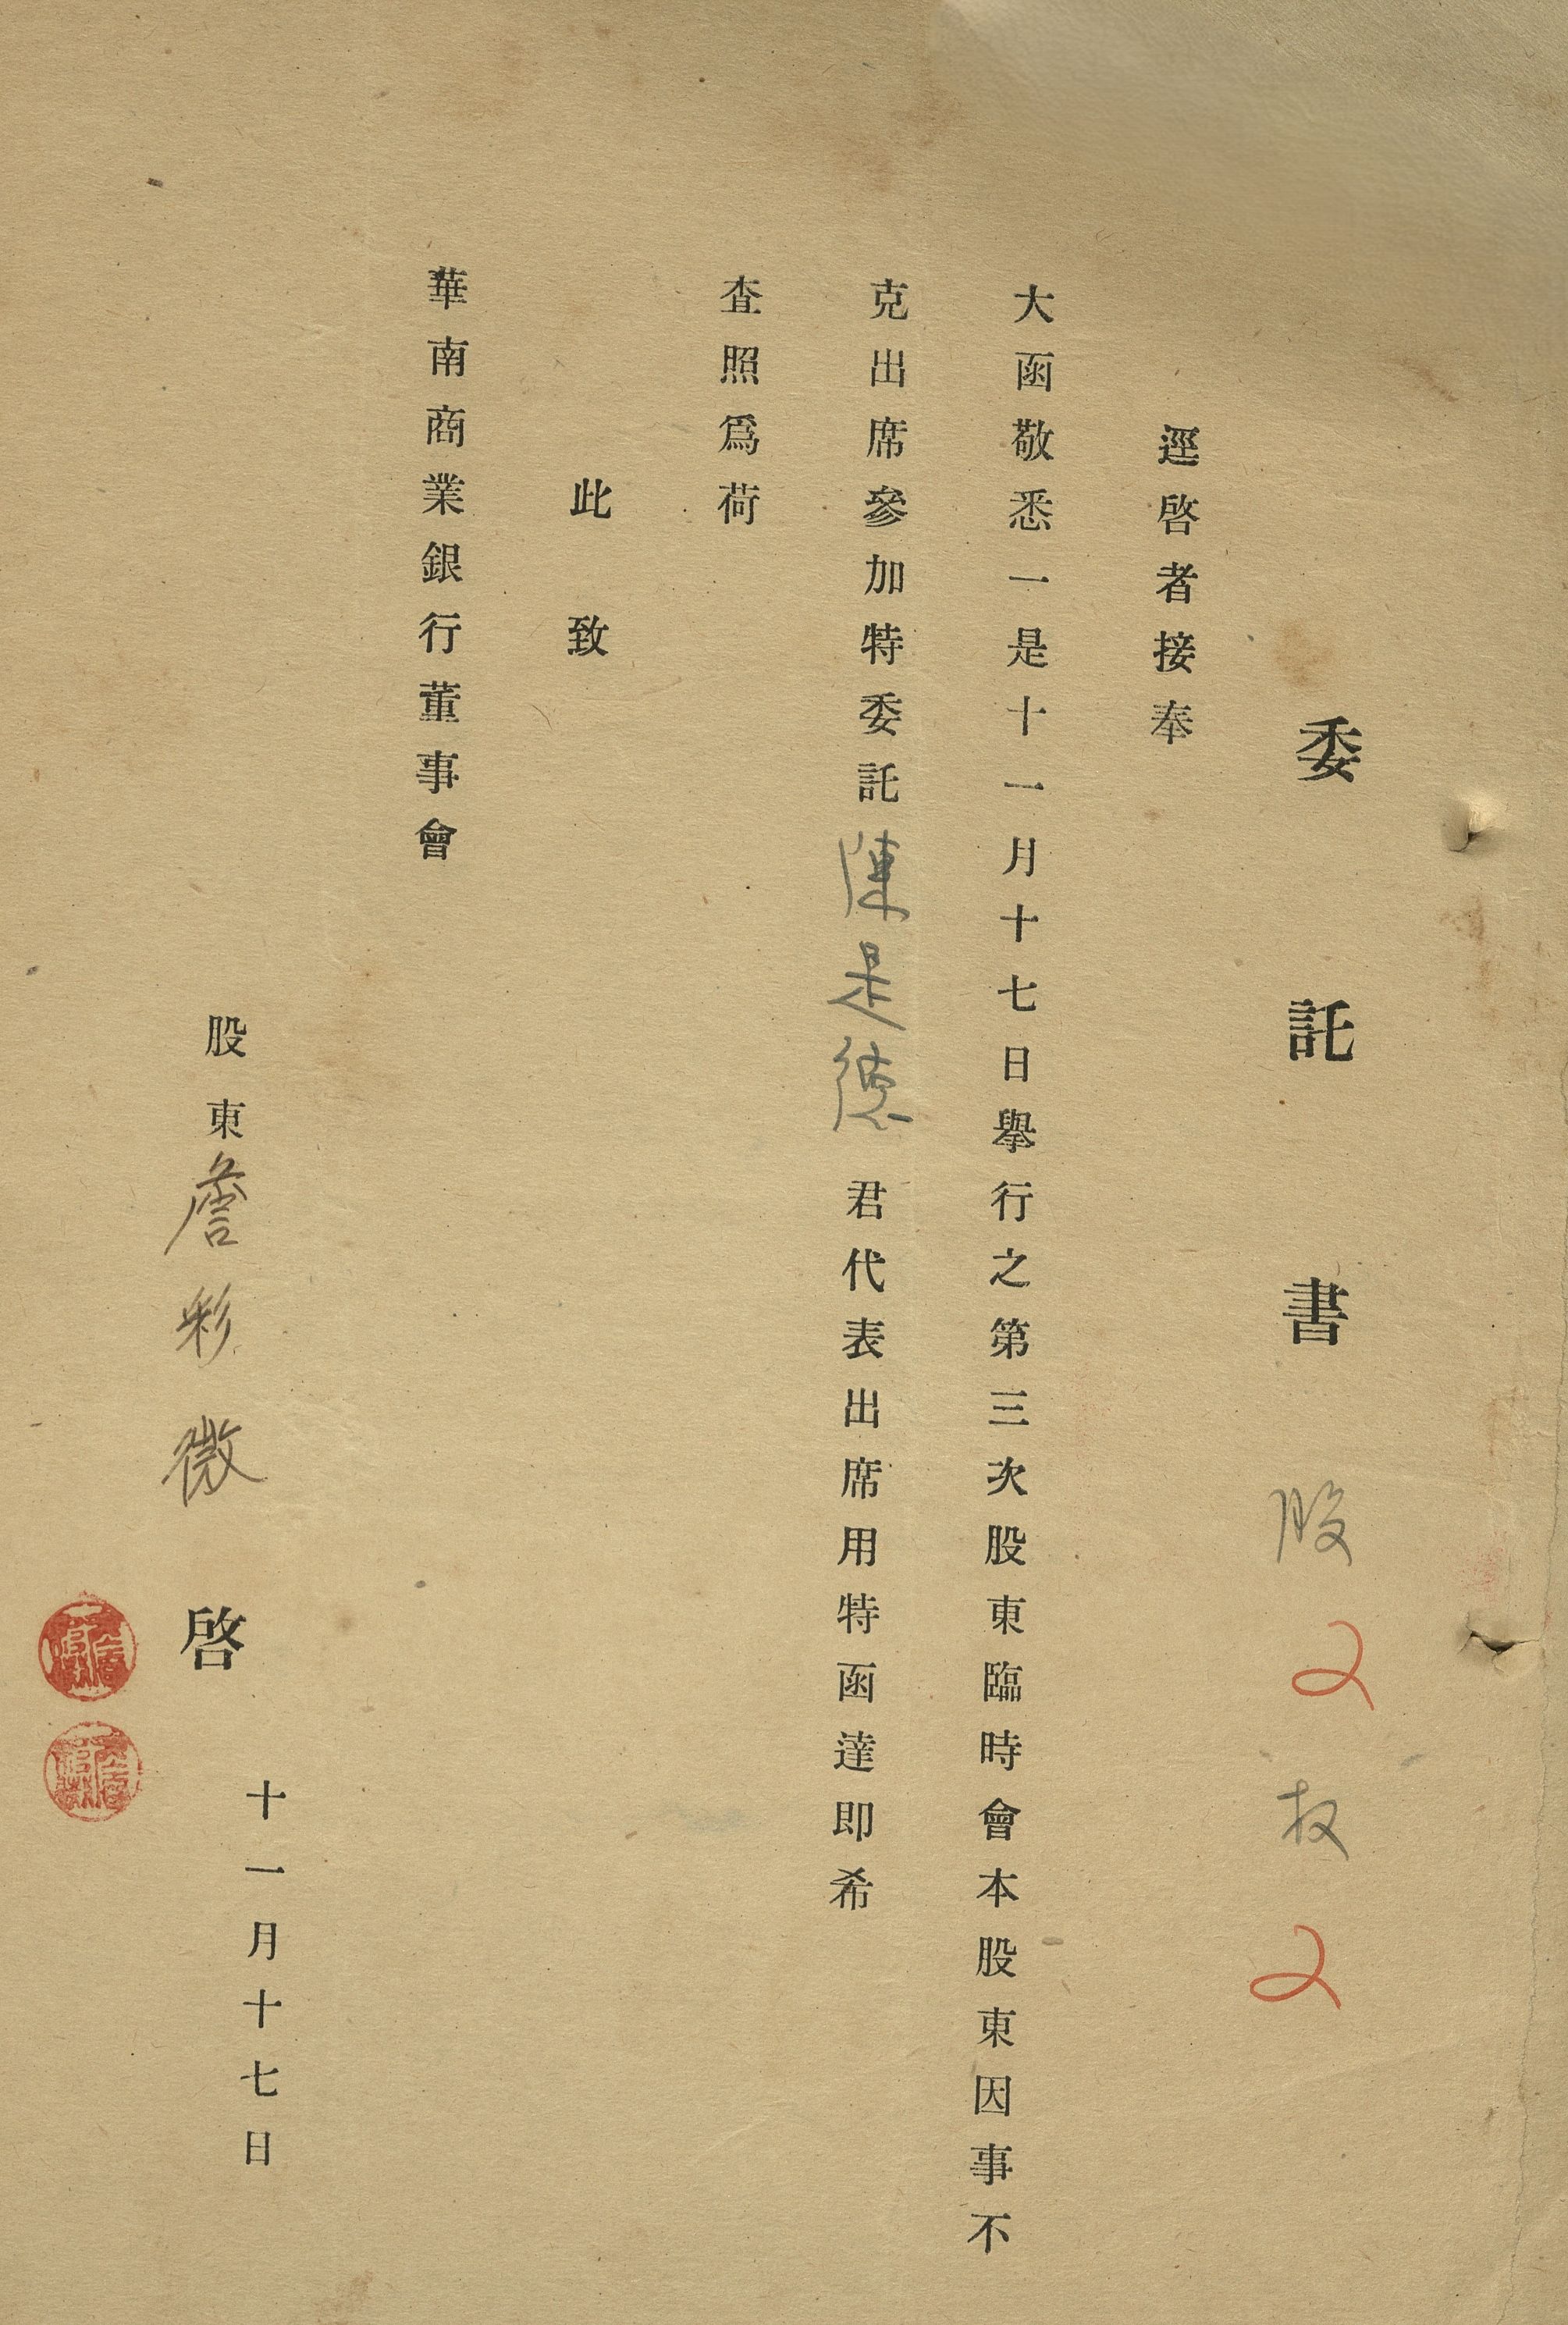 委託書 股 2 权 2
逕啓者接奉
大函敬悉一是十一月十七日舉行之第三次股東臨時會本股東因事不
克出席參加特委託陳是德君代表出席用特函達即希
查照爲荷
此致
華南商業銀行董事會
股東詹彩微啓
十一月十七日